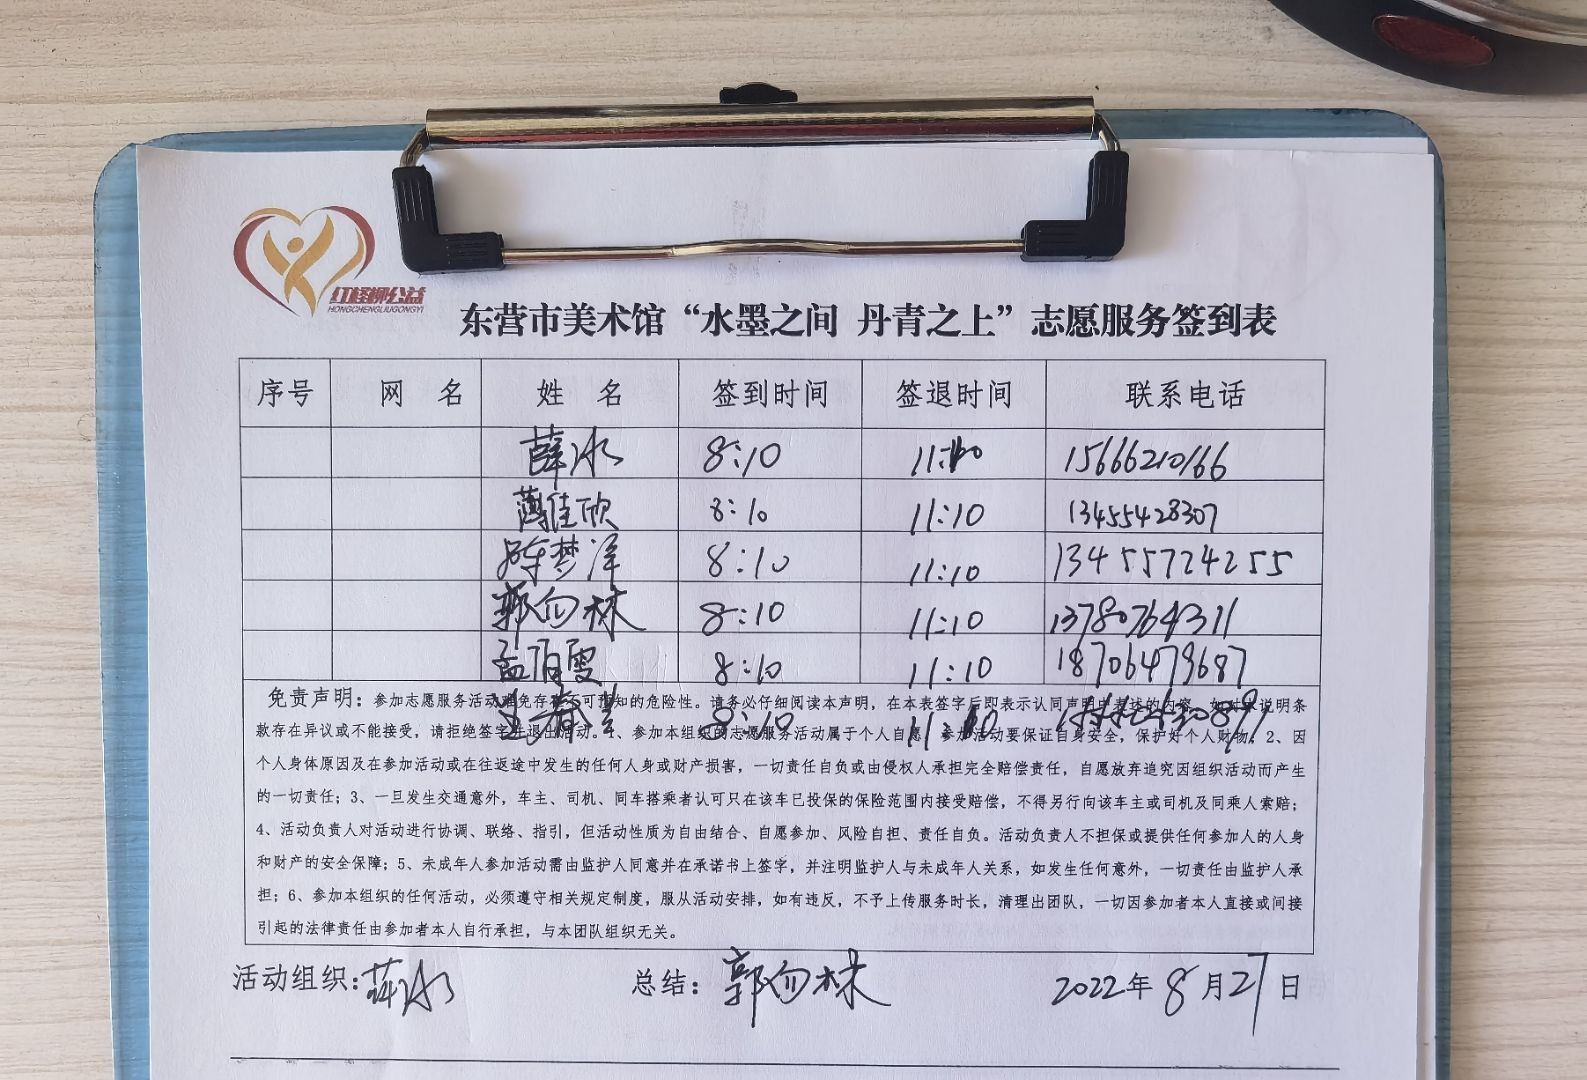 红柽柳公益
HONGCHENGLIUGONGYI
东营市美术馆“水墨之间 丹青之上”志愿服务签到表
序号 网 名 姓 名 签到时间 签退时间 联系电话
薛冰 8:10 11:10 15666210166
薄佳欣 8:10 11:10 13455428307
陈梦泽 8:10 11:10 13455724255
郭向林 8:10 11:10 13780764311
孟雯 8:10 11:10 18706479687
8:10 11:10
免责声明：参加志愿服务活动难免存在不可预知的危险性。请务必仔细阅读本声明，在本表签字后即表示认同声明中表述的内容。如对本说明条
款存在异议或不能接受，请拒绝签字并退出活动。1、参加本组织的志愿服务活动属于个人自愿，参加活动要保证自身安全，保护好个人财物；2、因
个人身体原因及在参加活动或在往返途中发生的任何人身或财产损害，一切责任自负或由侵权人承担完全赔偿责任，自愿放弃追究因组织活动而产生
的一切责任；3、一旦发生交通意外，车主、司机、同车搭乘者认可只在该车已投保的保险范围内接受赔偿，不得另行向该车主或司机及同乘人索赔；
4、活动负责人对活动进行协调、联络、指引，但活动性质为自由结合、自愿参加、风险自担、责任自负。活动负责人不担保或提供任何参加人的人身
和财产的安全保障；5、未成年人参加活动需由监护人同意并在承诺书上签字，并注明监护人与未成年人关系，如发生任何意外，一切责任由监护人承
担；6、参加本组织的任何活动，必须遵守相关规定制度，服从活动安排，如有违反，不予上传服务时长，清理出团队，一切因参加者本人直接或间接
引起的法律责任由参加者本人自行承担，与本团队组织无关。
活动组织：薛冰 总结：郭向林 2022年8月27日